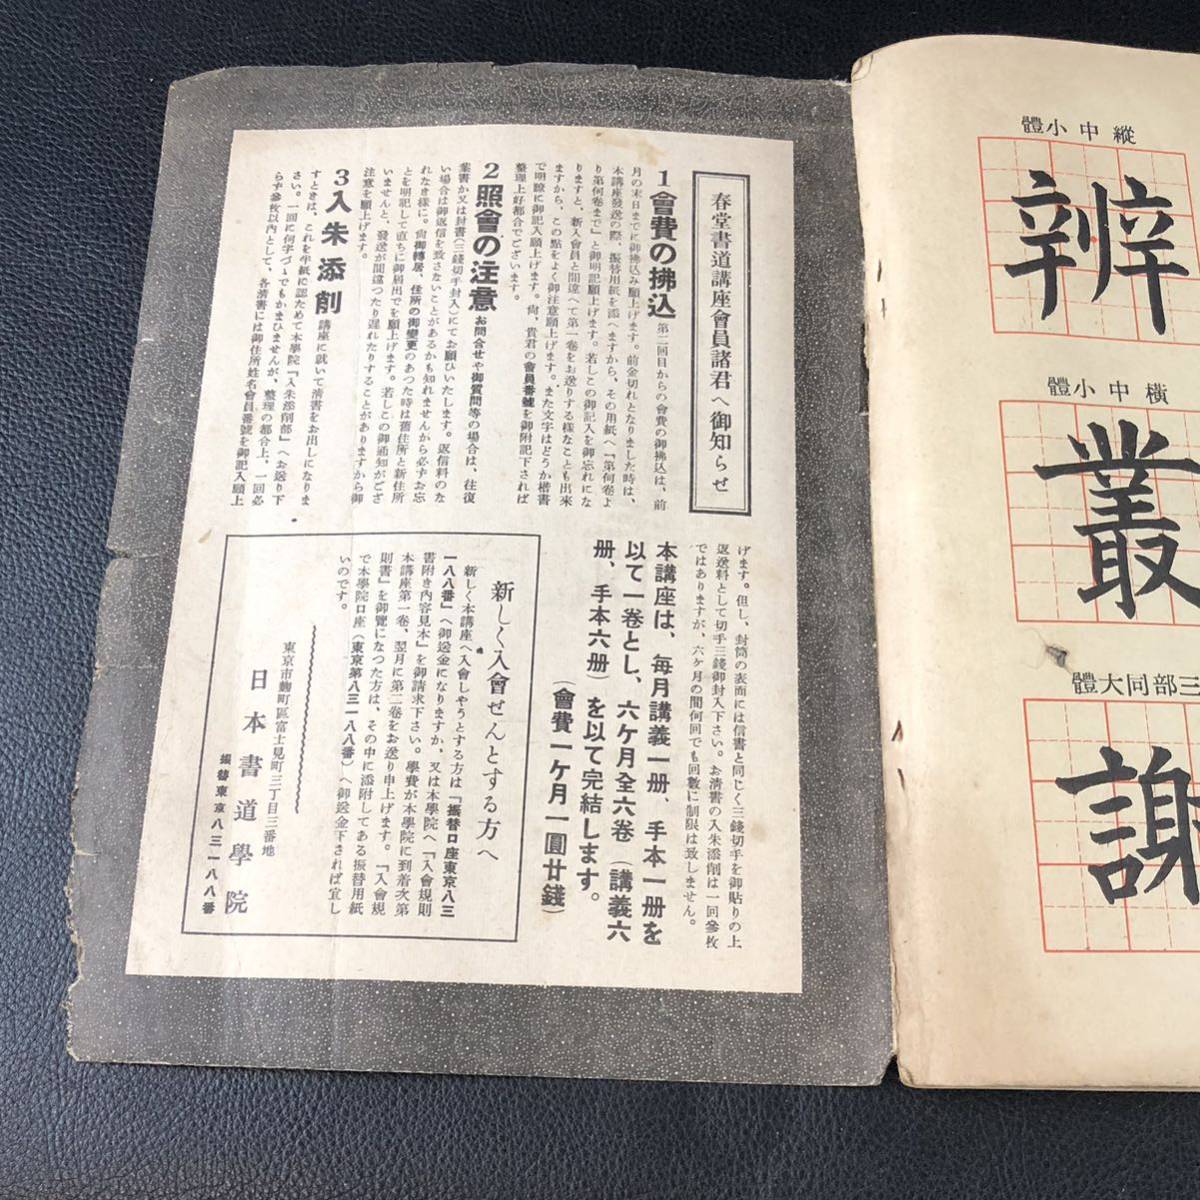 春堂書道講座會員諸君へ御知らせ
1 會費の拂込 第二回目からの會費の御拂込は、前
月の末日までに御拂込み願上げます。前金切れとなりました時は、
本講座發送の際、振替用紙を添へますから、その用紙へ「第何卷よ
り第何卷まで」と御明記願上げます。若しこの御記入を御忘れにな
りますと、新入會員と間違へて第一卷をお送りする樣なことも出來
ますから、この點をよく御注意願上げます。また文字はどうか楷書
で明瞭に御記入願上げます。尙、貴君の會員番號を御附記下されば
整理上好都合でございます。
2 照會の注意 お問合せや御質問等の場合は、往復
葉書か又は封書(三錢切手封入)にてお願ひいたします。返信料のな
い場合は御返信を致さないことがあるかも知れませんから必ずお忘
れなき樣に。尙御轉居、住所の御變更のあつた時は舊住所と新住所
とを明記して直ちに御屆出でを願上げます。若しこの御通知がござ
いませんと、發送が間違つたり遲れたりすることがありますから御
注意を願上げます。
3 入朱添削 講座に就いて淸書をお出しになりま
すときは、これを半紙に認ためて本學院「入朱添削部」へお送り下
さい。一回に何字づゝでもかまひませんが、整理の都合上、一回必
らず參枚以內として、各淸書には御住所姓名會員番號を御記入願上
げます。但し、封筒の表面には信書と同じく三錢切手を御貼りの上
返送料として切手三錢御封入下さい。お淸書の入朱添削は一回參枚
ではありますが、六ケ月の間何回でも回數に制限は致しません。
本講座は、每月講義一册、手本一册を
以て一卷とし、六ケ月全六卷(講義六
册、手本六册)を以て完結します。
(會費一ケ月一圓廿錢)
新しく入會せんとする方へ
新しく本講座へ入會しやうとする方は「振替口座東京八三
一八八番」へ御送金になりますか、又は本學院へ「入會規則
書附き內容見本」を御請求下さい。學費が本學院に到着次第
本講座第一卷、翌月に第二卷をお送り申上げます。「入會規
則書」を御覽になつた方は、その中に添附してある振替用紙
で本學院口座(東京第八三一八八番)へ御送金下されば宜し
いのです。
東京市麴町區富士見町二丁目三番地
日本書道學院
振替東京八三一八八番
縱中小體
辨
橫中小體
叢
三部同大體
謝